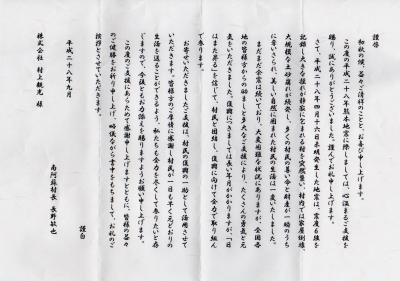 謹啓
初秋の候、益々ご清祥のことと、お喜び申し上げます。
この度の平成二十八年熊本地震に際しましては、心温まるご支援を
賜り、誠にありがとうございました。謹んでお礼申し上げます。
さて、平成二十八年四月十六日未明発生した地震は、震度6強を
記録し、大きな揺れが静寂に包まれる村を突然襲い、村内では家屋倒壊、
大規模な土砂崩れが続発し、多くの村民の尊い命と財産が一瞬のうち
に奪いさられ、美しい自然に囲まれた村民の生活は一変いたしました。
まだまだ余震は続いており、大変困難な状況にありますが、全国各
地の皆様方からの励ましと多大なご支援により、たくさんの勇気と元
気をいただきました。復興につきましては長い年月がかかりますが、「日
はまた昇る」を信じて、村民と団結し、復興に向けて全力で取り組ん
で参ります。
お寄せいただきましたご支援は、村民の復興の一助として活用させて
いただきます。皆様方のご厚情に感謝し村民が一日も早く元どおりの
生活を送ることができるよう、私たちも全力を尽くして参りたいと存
じますので、今後ともお力添えを賜りますようお願い申し上げます。
この度のご支援にあらためて感謝申し上げますとともに、皆様の益々
のご健勝をお祈り申し上げ、略儀ながら書中をもちまして、お礼のご
挨拶とさせていただきます。
謹白
平成二十八年九月
南阿蘇村長 長野敏也
株式会社 村上観光 様